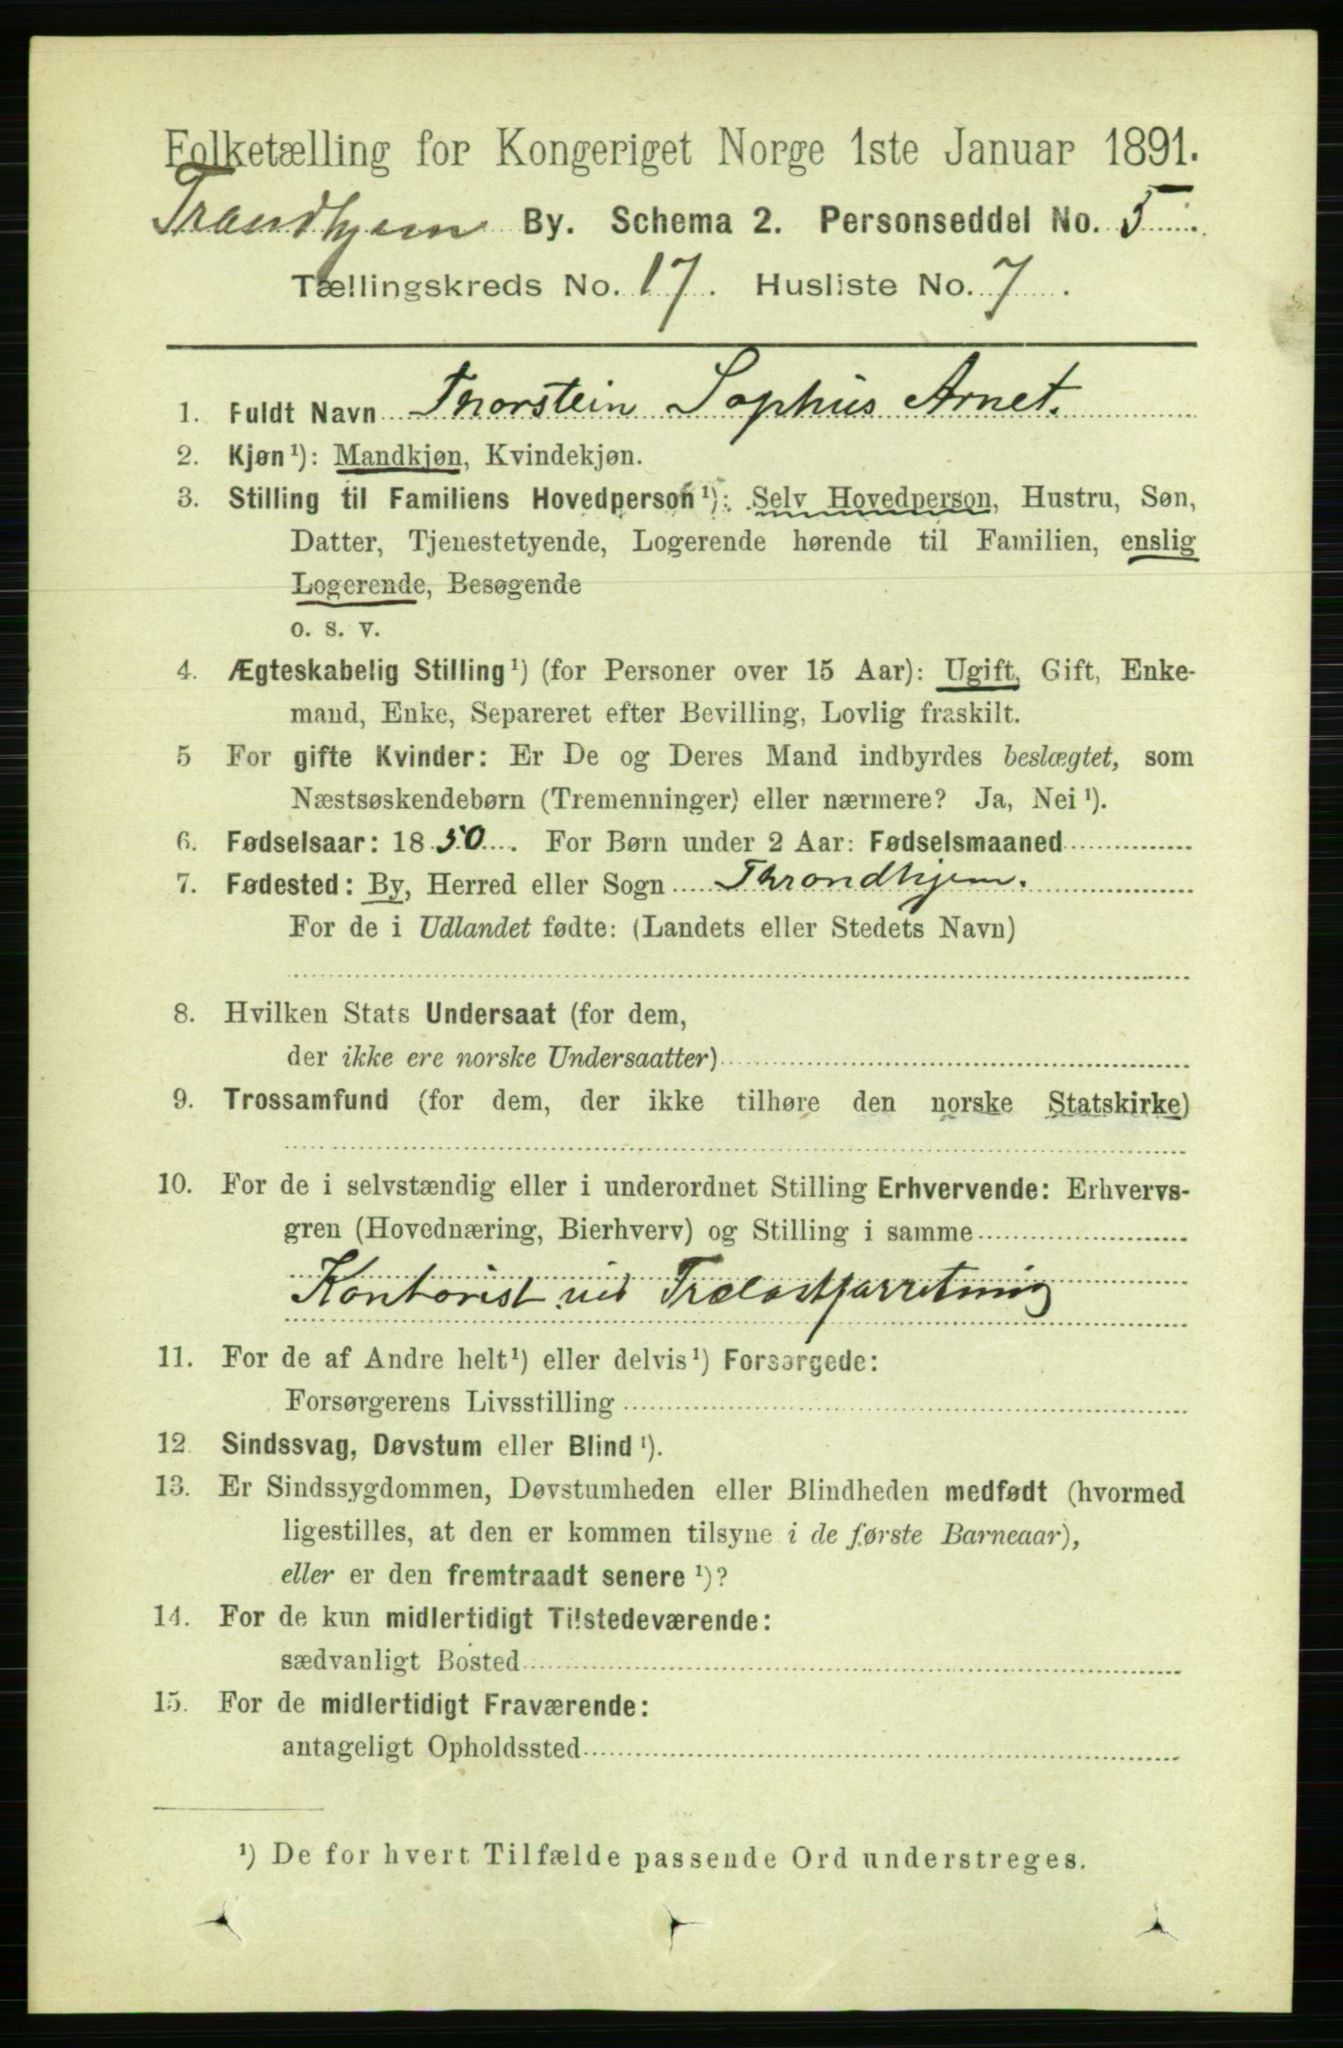 Folketælling for Kongeriget Norge 1ste Januar 1891.
Trondhjem By. Schema 2. Personseddel No. 5.
Tællingskreds No. 17. Husliste No. 7.
1. Fuldt Navn Thorstein Sophus Arnet.
2. Kjøn ¹): Mandkjøn, Kvindekjøn.
3. Stilling til Familiens Hovedperson ¹): Selv Hovedperson, Hustru, Søn,
Datter, Tjenestetyende, Logerende hørende til Familien, enslig
Logerende, Besøgende
o. s. v.
4. Ægteskabelig Stilling ¹) (for Personer over 15 Aar): Ugift, Gift, Enke-
mand, Enke, Separeret efter Bevilling, Lovlig fraskilt.
5 For gifte Kvinder: Er De og Deres Mand indbyrdes beslægtet, som
Næstsøskendebørn (Tremenninger) eller nærmere? Ja, Nei ¹).
6. Fødselsaar: 1850. For Børn under 2 Aar: Fødselsmaaned
7. Fødested: By, Herred eller Sogn Throndhjem.
For de i Udlandet fødte: (Landets eller Stedets Navn)
8. Hvilken Stats Undersaat (for dem,
der ikke ere norske Undersaatter)
9. Trossamfund (for dem, der ikke tilhøre den norske Statskirke)
10. For de i selvstændig eller i underordnet Stilling Erhvervende: Erhvervs-
gren (Hovednæring, Bierhverv) og Stilling i samme
Kontorist ved Trælastforretning
11. For de af Andre helt ¹) eller delvis ¹) Forsørgede:
Forsørgerens Livsstilling
12. Sindssvag, Døvstum eller Blind ¹).
13. Er Sindssygdommen, Døvstumheden eller Blindheden medfødt (hvormed
ligestilles, at den er kommen tilsyne i de første Barneaar),
eller er den fremtraadt senere ¹)?
14. For de kun midlertidigt Tilstedeværende:
sædvanligt Bosted
15. For de midlertidigt Fraværende:
antageligt Opholdssted
¹) De for hvert Tilfælde passende Ord understreges.